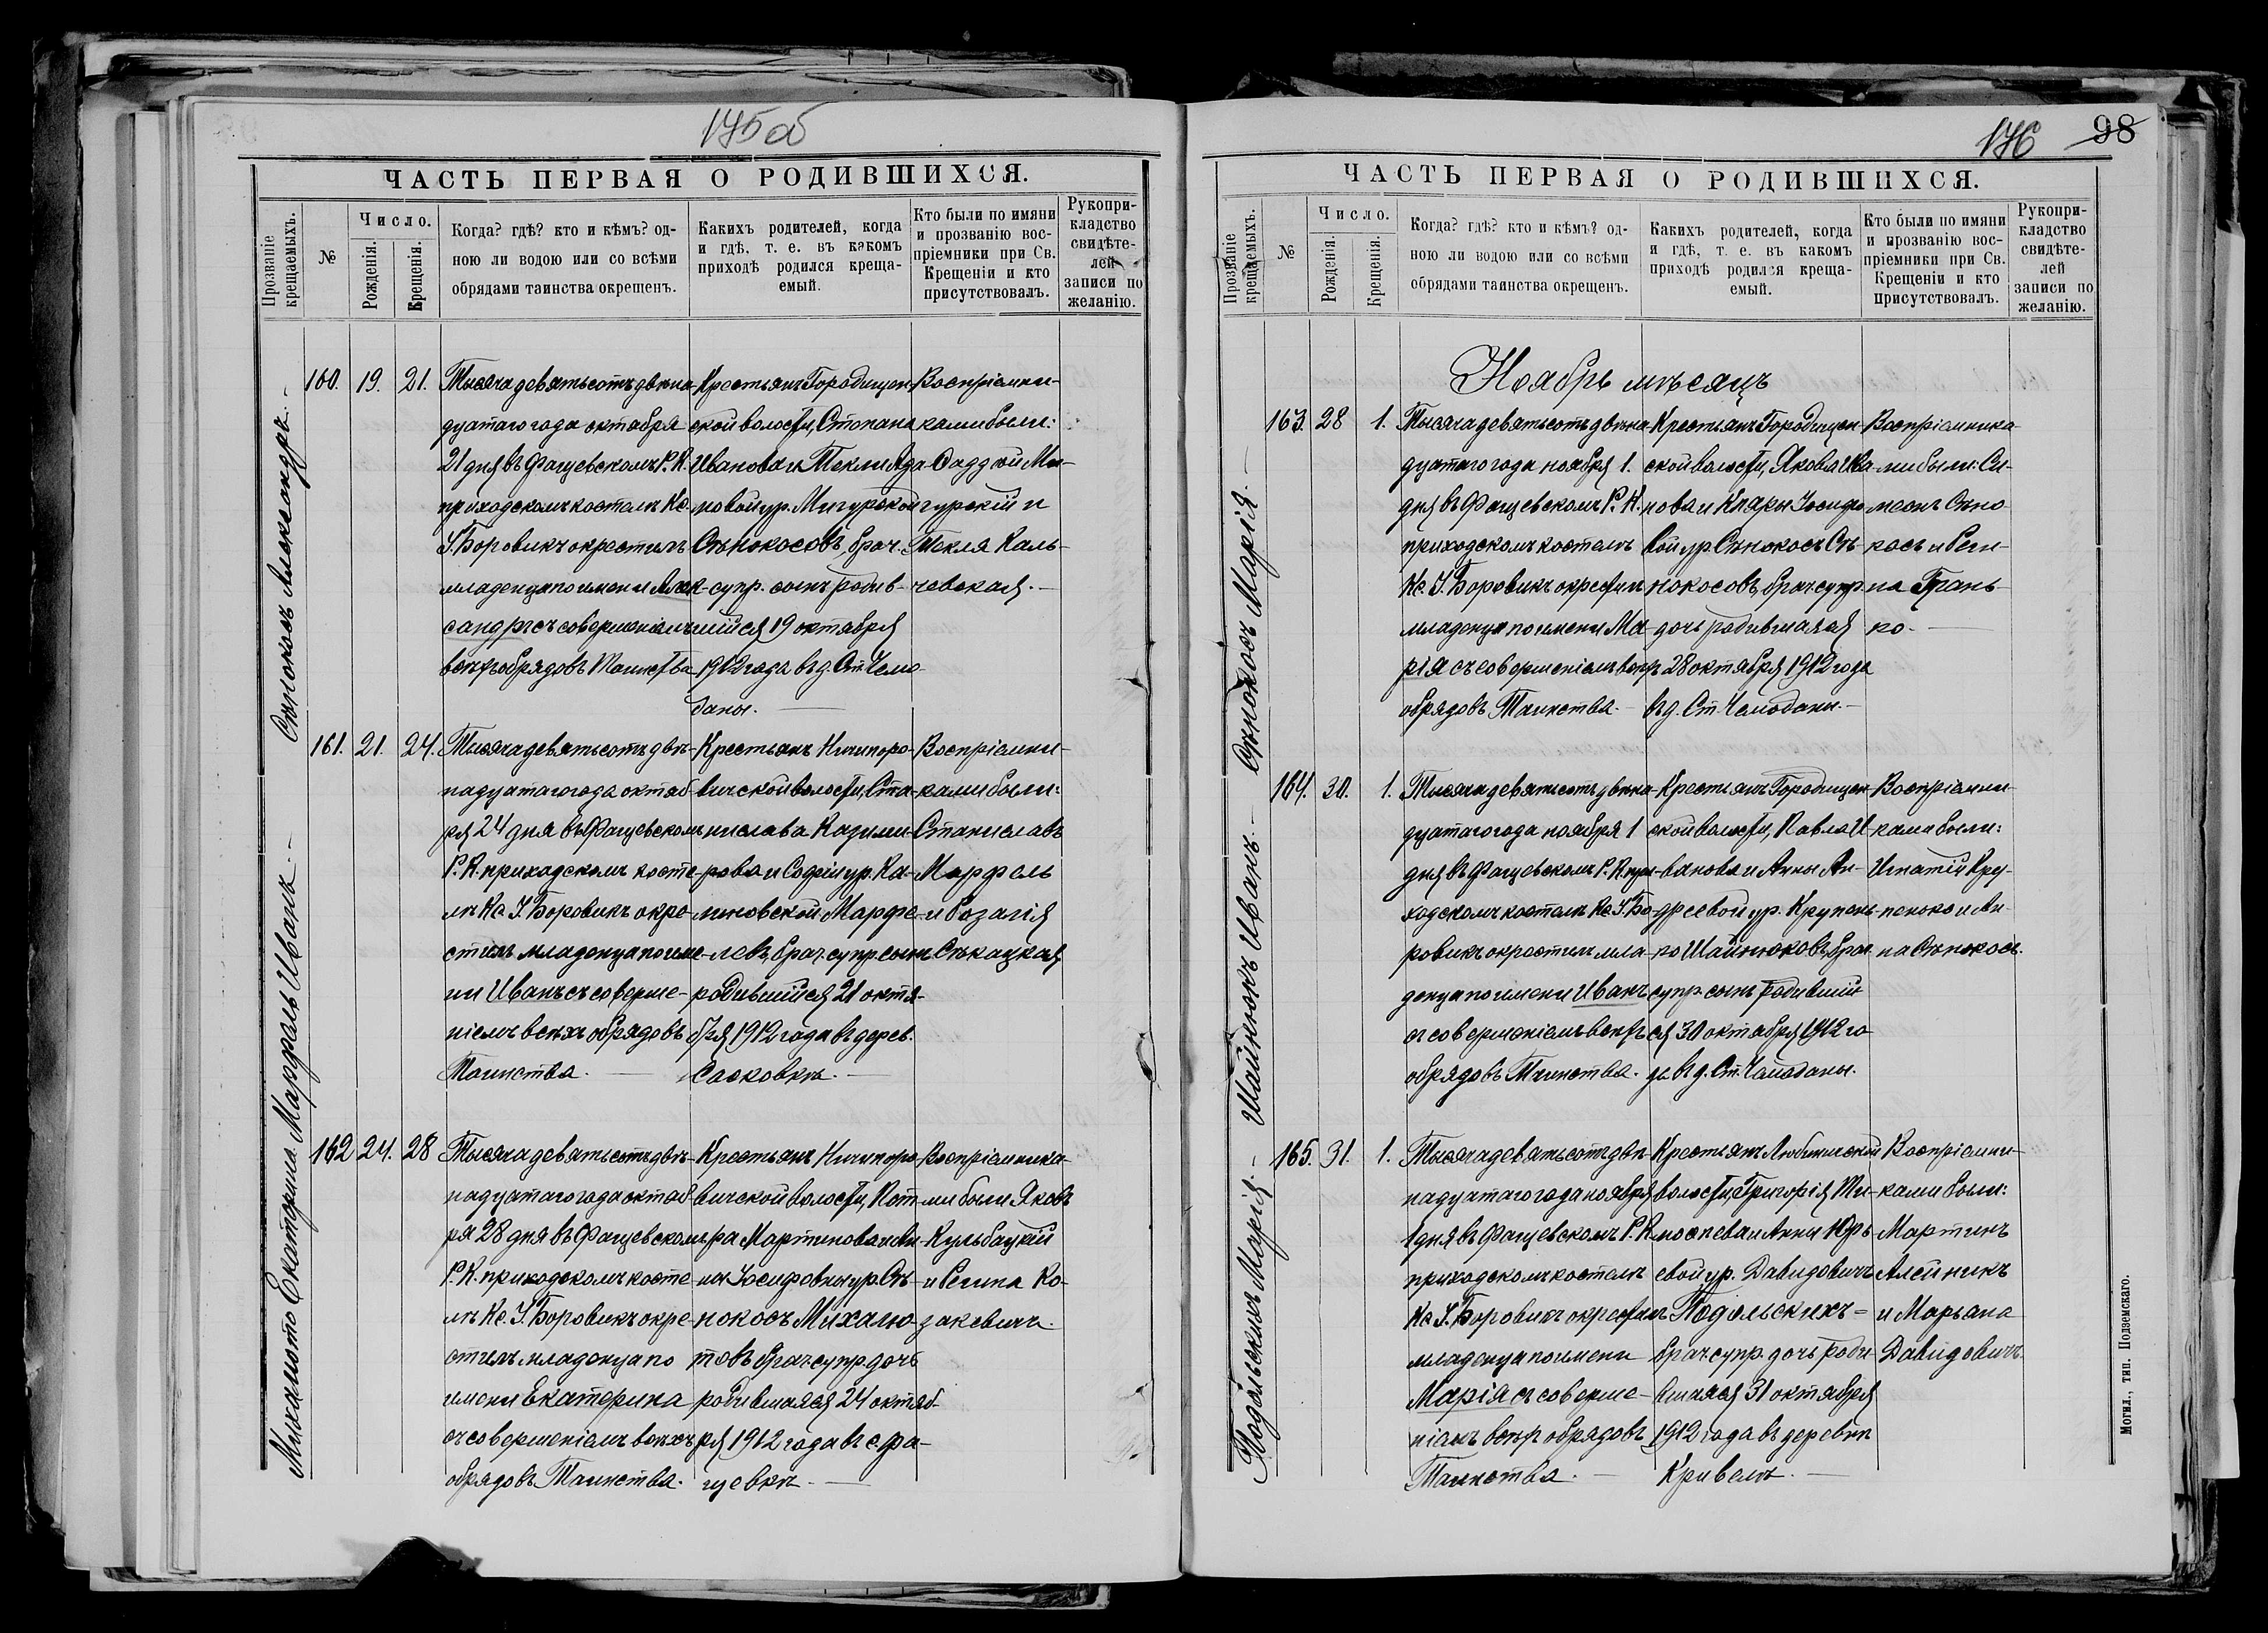 175об
ЧАСТЬ ПЕРВАЯ О РОДИВШИХСЯ.
Прозваніе крещаемыхъ.
№
Число.
Рожденія.
Крещенія.
Когда? гдѣ? кто и кѣмъ? од-
ною ли водою или со всѣми
обрядами таинства окрещенъ.
Какихъ родителей, когда
и гдѣ, т. е. въ какомъ
приходѣ родился креща-
емый.
Кто были по имяни
и прозванію вос-
пріемники при Св.
Крещеніи и кто
присутствовалъ.
Рукопри-
кладство
свидѣте-
лей
записи по
желанію.
Сѣнокосъ Александръ.-
160. 19. 21.
Тысяча девятьсотъ двѣна-
дцатаго года октября
21 дня въ Фащевскомъ Р. К.
приходскомъ костелѣ Кс.
І. Боровикъ окрестилъ
младенца по имени Алек-
сандръ съ совершеніемъ
всѣхъ обрядовъ Таинства
Крестьянъ Городищен-
ской волости, Степана
Иванова и Текли Ада-
мовой ур. Мигурской
Сѣнокосовъ, брач.
супр. сынъ родив-
шійся 19 октября
1912 года въ д. Ст. Чемо-
даны.
Воспріемни-
ками были:
Фаддей Ми-
гурскій и
Текля Каль-
чевская.-
Марфель Иванъ.-
161. 21. 24.
Тысяча девятьсотъ двѣ-
надцатаго года октяб-
ря 24 дня въ Фащевскомъ
Р. К. приходскомъ косте-
лѣ Кс І. Боровикъ окре-
стилъ младенца по име-
ни Иванъ съ соверше-
ніемъ всѣхъ обрядовъ
Таинства.
Крестьянъ Ничипоро-
вичской волости, Ста-
нислава Казими-
рова и Софіи ур. Ка-
линовской Марфе-
левъ, брач. супр. сынъ
родившійся 21 октя-
бря 1912 года въ дерев.
Сасковкѣ.-
Воспріемни-
ками были:
Станиславъ
Марфель
и Розалія
Сѣкацкая
Михалюто Екатерина
162 24. 28
Тысяча девятьсотъ двѣ-
надцатаго года октяб-
ря 28 дня въ Фащевскомъ
Р. К. приходскомъ косте-
лѣ Кс. І. Боровикъ окре-
стилъ младенца по
имени Екатерина
съ совершеніемъ всѣхъ
обрядовъ Таинства.
Крестьянъ Ничипоро-
вичской волости, Пет-
ра Мартинова и Ан-
ны Іосифовны ур. Сѣ-
нокосъ Михалю-
товъ брач. супр. дочь
родившаяся 24 октяб-
ря 1912 года въ с. Фа-
щевкѣ.
Воспріемника-
ми были Яковъ
Кульбацкій
и Регина Ко-
закевичъ.
176 98
ЧАСТЬ ПЕРВАЯ О РОДИВШИХСЯ.
Прозваніе крещаемыхъ.
№
Число.
Рожденія.
Крещенія.
Когда? гдѣ? кто и кѣмъ? од-
ною ли водою или со всѣми
обрядами таинства окрещенъ.
Какихъ родителей, когда
и гдѣ, т. е. въ какомъ
приходѣ родился креща-
емый.
Кто были по имяни
и прозванію вос-
пріемники при Св.
Крещеніи и кто
присутствовалъ.
Рукопри-
кладство
свидѣте-
лей
записи по
желанію.
Ноябрь мѣсяцъ
Сѣнокосъ Марія.-
163. 28 1.
Тысяча девятьсотъ двѣна-
дцатаго года ноября 1.
дня въ Фащевскомъ Р. К.
приходскомъ костелѣ
Кс. І. Боровикъ окрестилъ
младенца по имени Ма-
рія съ совершеніемъ всѣхъ
обрядовъ Таинства.-
Крестьянъ Городищен-
ской волости, Якова Ива-
нова и Клары Іосифо-
вой ур. Сѣнокосъ Сѣ-
нокосовъ, брач. супр.
дочь родившаяся
28 октября 1912 года
въ д. Ст. Чемоданы.-
Воспріемника-
ми были: Си-
меонъ Сѣно-
косъ и Реги-
на Грань-
ко.
Шайнюкъ Иванъ.-
164. 30. 1.
Тысяча девятьсотъ двѣна-
дцатаго года ноября 1
дня въ Фащевскомъ Р. К. при-
ходскомъ костелѣ Кс. І. Бо-
ровикъ окрестилъ мла-
денца по имени Иванъ
съ совершеніемъ всѣхъ
обрядовъ Таинства.
Крестьянъ Городищен-
ской волости, Павла И-
ванова и Анны Ан-
дреевой ур. Крупень-
ко Шайнюковъ, брач.
супр. сынъ родившій-
ся 30 октября 1912 го-
да въ д. Ст. Чемоданы.
Воспріемни-
ками были:
Игнатій Кру-
пенько и Ан-
на Сѣнокосъ.
Подольскихъ Марія-
165. 31. 1.
Тысяча девятьсотъ двѣ-
надцатаго года ноября
1 дня въ Фащевскомъ Р. К.
приходскомъ костелѣ
Кс І. Боровикъ окрестилъ
младенца по имени
Марія съ соверше-
ніемъ всѣхъ обрядовъ
Таинства.
Крестьянъ Любинической
волости, Григорія Ти-
мосѣева и Анны Юрь-
евой ур. Давидовичъ
Подольскихъ-
брач. супр. дочь роди-
вшаяся 31 октября
1912 года въ деревнѣ
Кривелѣ.
Воспріемни-
ками были:
Мартинъ
Алейникъ
и Марьяна
Давидовичъ.
Могил., тип. Подземскаго.